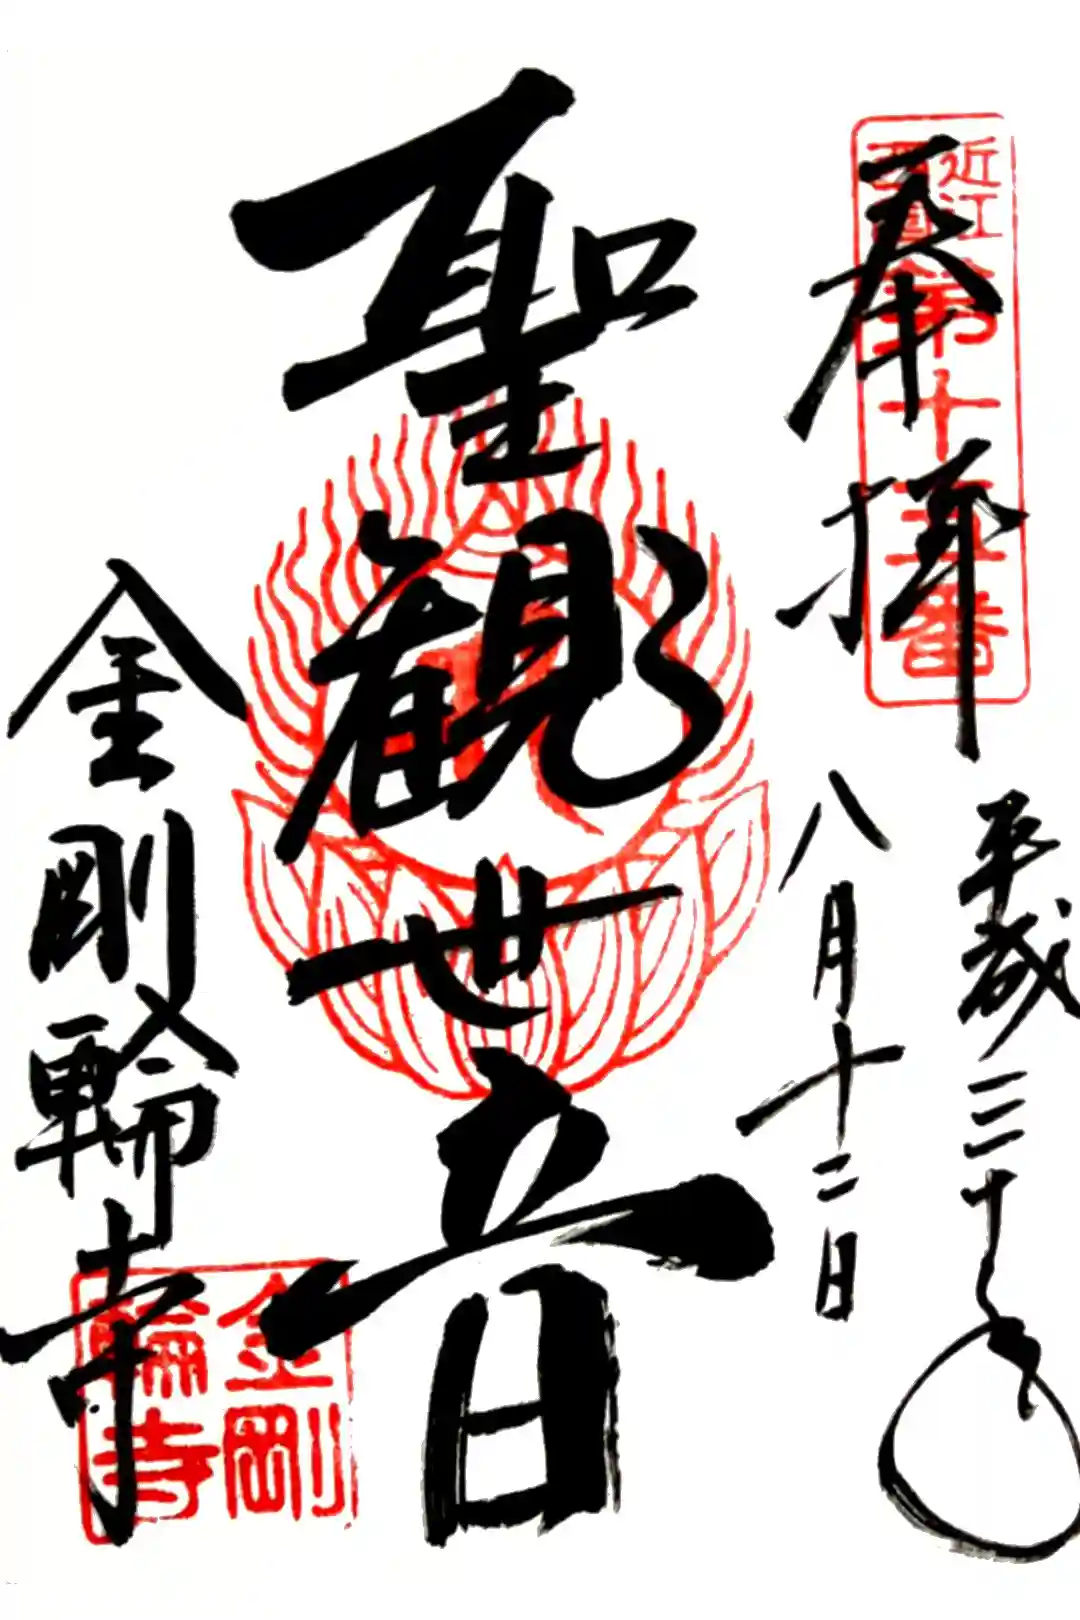 奉拝
近江
西国
第十五番
平成三十年
八月十二日
聖観世音
金剛輪寺
金剛
輪寺